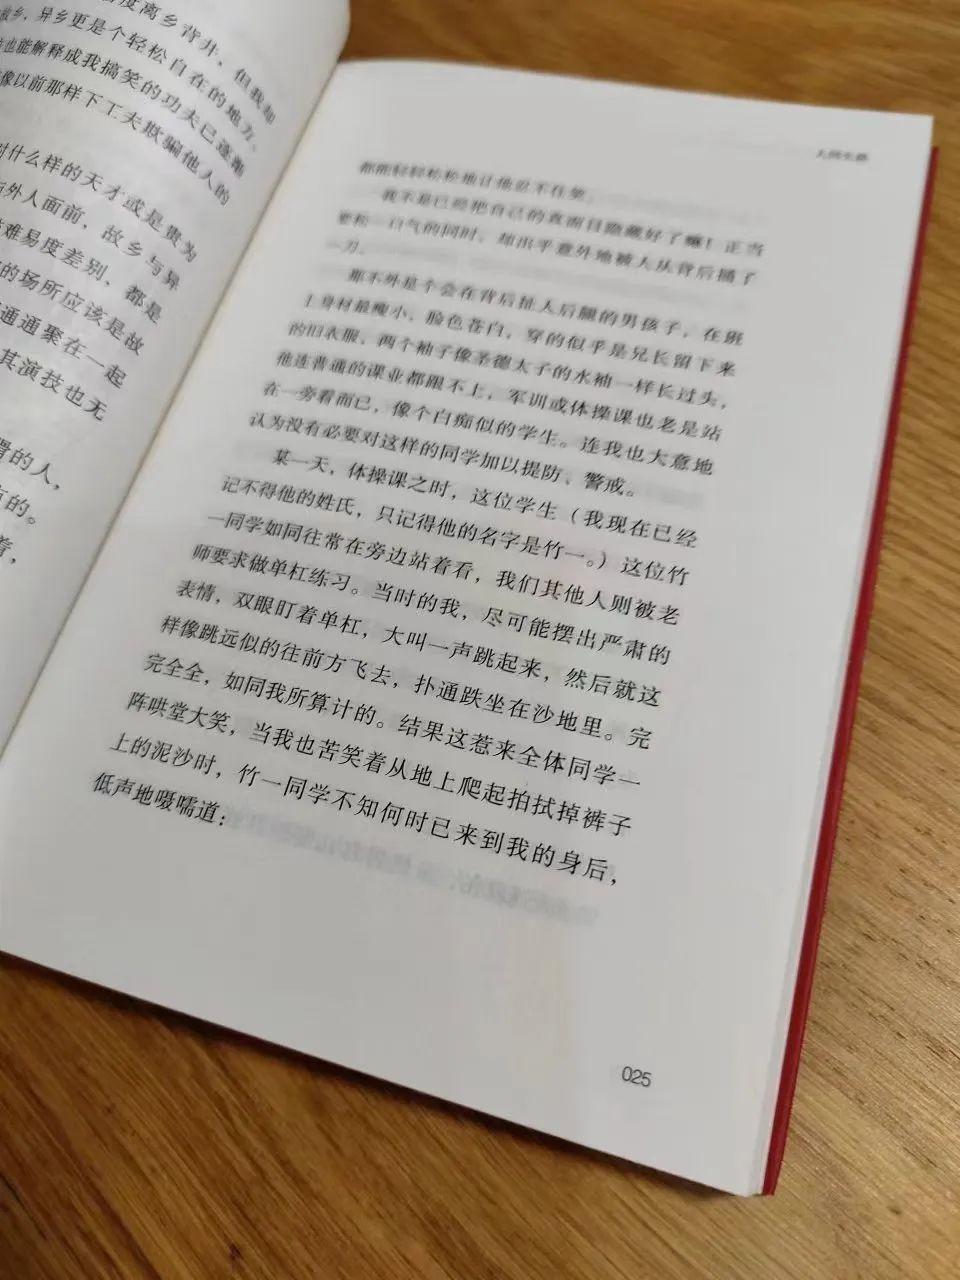 度离乡背井，但我却
故乡，异乡更是个轻松自在的地方。
也能解释成我搞笑的功夫已逐渐
像以前那样下工夫欺骗他人的
对什么样的天才或是贵为
外人面前，故乡与异
难易度差别，都是
的场所应该是故
通通聚在一起
其演技也无
滑的人，
有的。
着，
人间失格
都能轻轻松松地让他忍不住笑。
我不是已经把自己的真面目隐藏好了嘛！正当
要松一口气的同时，却出乎意外地被人从背后捅了
一刀。
那不外是个会在背后扯人后腿的男孩子，在班
上身材最瘦小，脸色苍白，穿的似乎是兄长留下来
的旧衣服，两个袖子像圣德太子的水袖一样长过头，
他连普通的课业都跟不上，军训或体操课也老是站
在一旁看而已，像个白痴似的学生。连我也大意地
认为没有必要对这样的同学加以提防、警戒。
某一天，体操课之时，这位学生（我现在已经
记不得他的姓氏，只记得他的名字是竹一。）这位竹
一同学如同往常在旁边站着看，我们其他人则被老
师要求做单杠练习。当时的我，尽可能摆出严肃的
表情，双眼盯着单杠，大叫一声跳起来，然后就这
样像跳远似的往前方飞去，扑通跌坐在沙地里。完
完全全，如同我所算计的。结果这惹来全体同学一
阵哄堂大笑，当我也苦笑着从地上爬起拍拭掉裤子
上的泥沙时，竹一同学不知何时已来到我的身后，
低声地嗫嚅道：
025